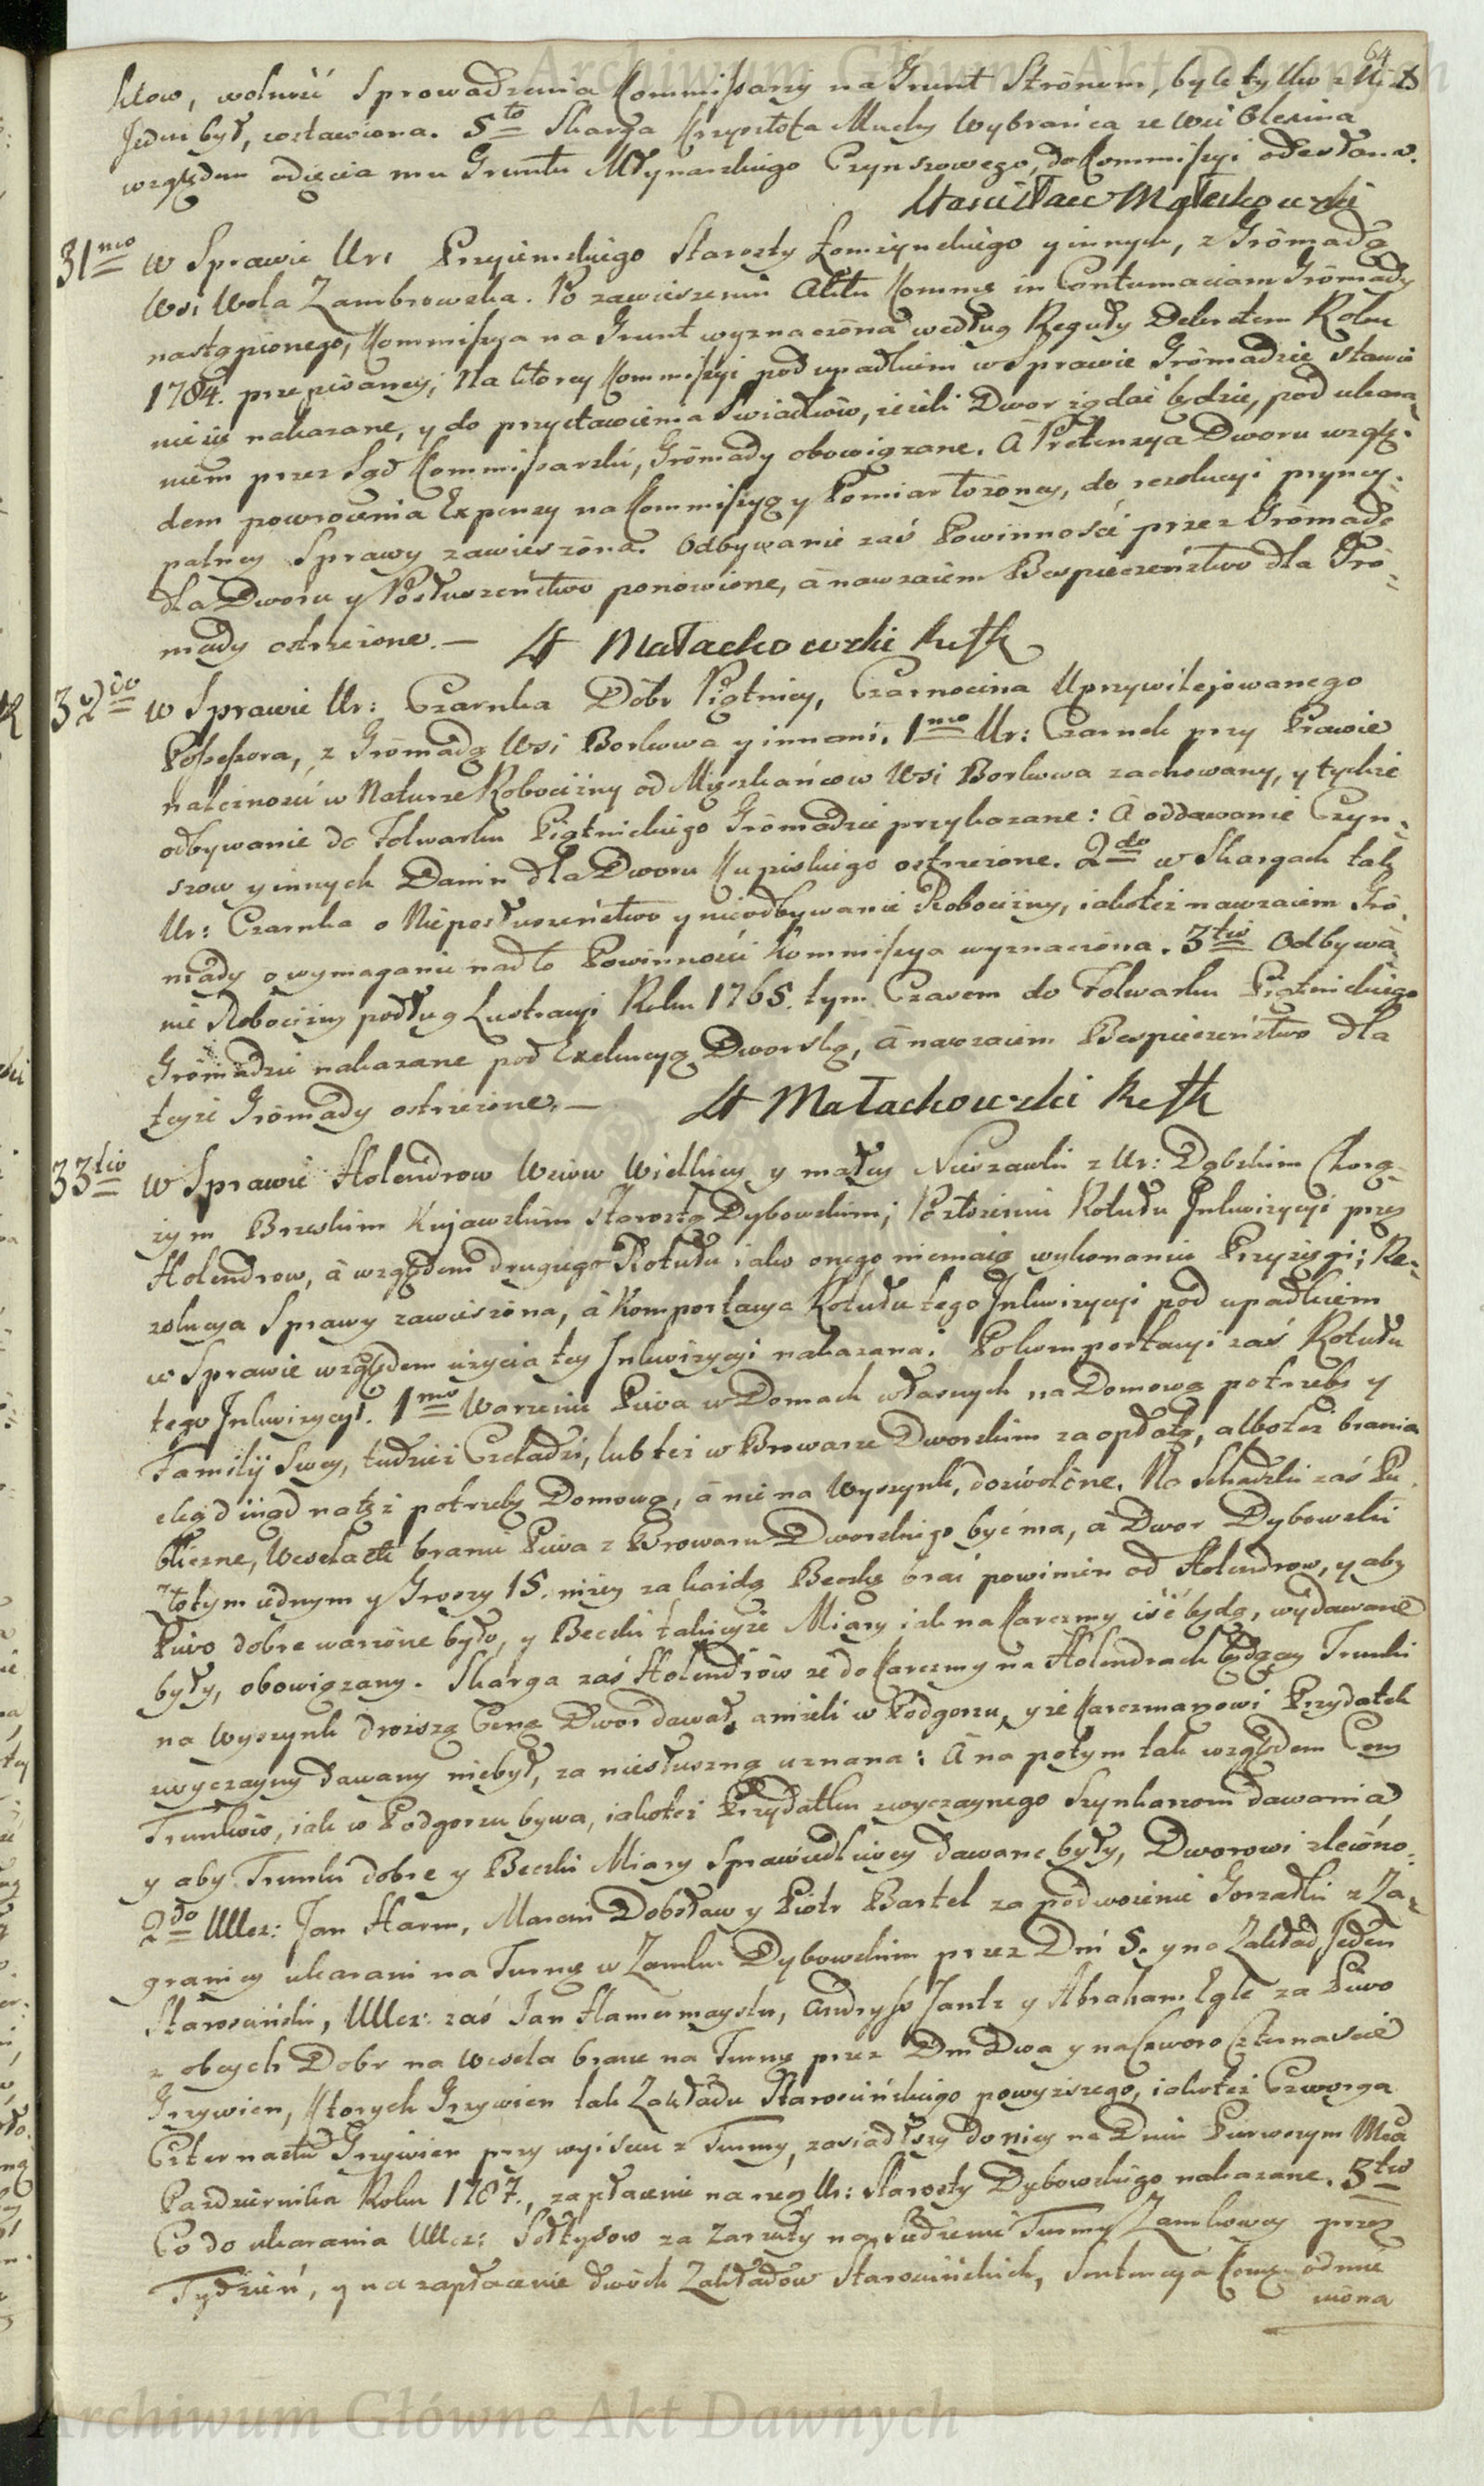 64
ktow, wolność Sprowadzenia Kommissarzy na Grunt Stronom, byle tylko z
Jeden był, zostawiona. 5to Skarga Krzysztofa Muchy Wybrańca ze Wsi Olexina
względem odięcia mu Gruntu Młynarskiego Czynszowego, do Kommissyi odesłana.
Stanisław Małachowski
31mo W Sprawie Ur: Przyiemskiego Starosty Łomżynskiego y innych, z Gromadą
Wsi Wola Zambrowska. Po zawieszeniu Aktu Komme in Contumaciam Gromady
nastąpionego, Kommissya na Grunt wyznaczona według Reguły Dekretem Roku
1784. przepisaney; Na ktorey Kommissyi pod upadkiem w Sprawie Gromadzie stawie
nie się nakazane, y do przystawienia Swiadkow, ieżeli Dwor żądać będzie, pod ukara
niem przez Sąd Kommissarski, Gromady obowiązane. A Pretensya Dworu wzglę-
dem powrocenia Expensy na Kommissyą y Pomiar łożoney, do rezolucyi pryncy-
palney Sprawy zawieszona. Odbywanie zaś Powinności przez Gromadę
dla Dworu y Posłuszeństwo ponowione, a nawzaiem Bespieczeństwo dla Gro-
mady ostrzeżone. — St Małachowski RefK
32do W Sprawie Ur: Czarnka Dobr Piątnicy, Czarnocina Uprzywilejowanego
Possessora, z Gromadą Wsi Borkowa y innemi. 1mo Ur: Czarnek przy Prawie
należności w Naturze Robocizny od Mieszkańcow Wsi Borkowa zachowany, y tychże
odbywanie do Folwarku Piątnickiego Gromadzie przykazane: A oddawanie Czyn-
szow y innych Danin dla Dworu Kupiskiego ostrzeżone. 2do w Skargach tak
Ur: Czarnka o Nieposłuszeństwo y nieodbywanie Robocizny, iakoteż nawzaiem Gro-
mady o wymaganie nad to Powinności Kommissya wyznaczona. 3tio Odbywa-
nie Robocizny podług Lustracyi Roku 1765. tym Czasem do Folwarku Piątnickiego
Gromadzie nakazane pod Exekucyą Dworską, a nawzaiem Bespieczeństwo dla
teyże Gromady ostrzeżone. — St Małachowski RefK
33tio W Sprawie Holendrow Wsiow Wielkiey y małey Nieszawki z Ur: Dąbskim Chorą-
żym Brzeskim Kujawskim Starostą Dybowskim; Po złożeniu Rotułu Inkwizycyi przez
Holendrow, a względem drugiego Rotułu iako onego niemaią wykonaniu Przysięgi; Re-
zolucya Sprawy zawieszona, a Komportacya Rotułu tego Inkwizycyi pod upadkiem
w Sprawie względem użycia tey Inkwizycyi nakazana. Po komportacyi zaś Rotułu
tego Inkwizycyi. 1mo Warzenie Piwa w Domach własnych na Domową potrzebę y
Familij swey, tudzież Czeladzi, lub też w Browarze Dworskim za opłatą, alboteż brania
skąd inąd na tęż potrzebę Domową, a nie na Wyszynk, dozwolone. Na Schadzki zaś Pu-
bliczne, Wesela etc branie Piwa z Browaru Dworskiego być ma, a Dwor Dybowski
Złotym iednym y Groszy 15. niżey za każdą Beczkę brać powinien od Holendrow, y aby
Piwo dobre warzone było, y Beczki takieyże Miary iak na Karczmy iść będą, wydawane
były, obowiązany. Skarga zaś Holendrow że do Karczmy na Holendrach będącey Trunki
na Wyszynk droższą Ceną Dwor dawał, aniżeli w Podgorzu, y że Karczmarzowi Przydatek
zwyczayny dawany niebył, za niesłuszną uznana: A na potym tak względem Ceny
Trunkow, iak w Podgorzu bywa, iakoteż Przydatku zwyczaynego Szynkarzom dawania
y aby Trunki dobre y Beczki Miary Sprawiedliwey dawane były, Dworowi zlecono.
2do UUcz: Jan Harm, Marcin Dobsław y Piotr Bartel za podwożenie Gorzałki z Za-
granicy ukarani na Turmę w Zamku Dybowskim przez Dni 5. y na Zakład Jeden
Starosciński, UUcz: zaś Jan Hamermayster, Andryss Jantz y Abraham Egle za Piwo
z obcych Dobr na Wesela brane na Turmę przez Dni Dwa y na Czworo Czternascie
Grzywien, Ktorych Grzywien tak Zakładu Starościńskiego powyższego, iakoteż Czworga
Czternastu Grzywien przy wyisciu z Turmy, zasiadłszy do niey na Dniu Pierwszym Mca
Pazdziernika Roku 1787., zapłacenie na rzecz Ur: Starosty Dybowskiego nakazane. 3tio
Co do ukarania UUcz: Sołtysow za Zarzuty na siedzenie Turmy Zamkowey przez
Tydzień, y na zapłacenie dwoch Zakładow Starościńskich, Sentencya Komme odmie
niona